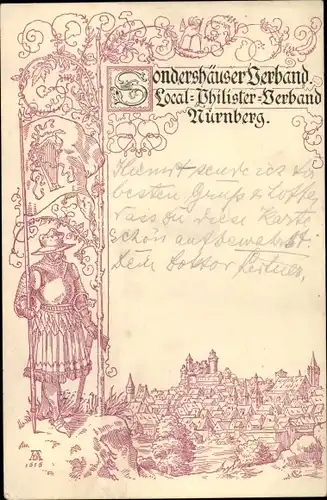 Sondershäuser Verband.
Local-Philister-Verband
Nürnberg.
Hiermit sende ich die
besten Grüße & hoffe,
dass du diese Karte
schön aufbewahrst.
Dein Doktor
1515